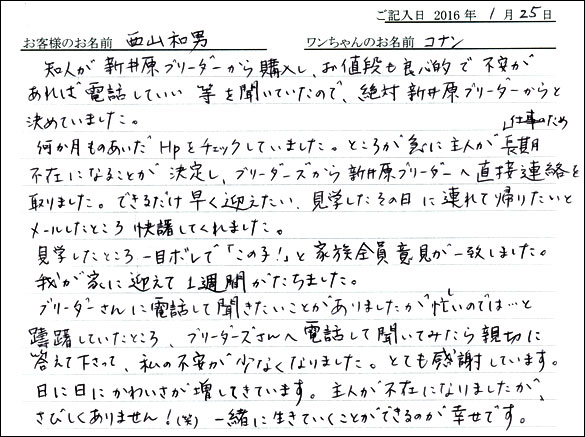 ご記入日 2016年 1月 25日
お客様のお名前 西山和男 ワンちゃんのお名前 コナン
知人が新井原ブリーダーから購入し、お値段も良心的で不安が
あれば電話していい等を聞いていたので、絶対新井原ブリーダーからと
決めていました。
何か月ものあいだHpをチェックしていました。ところが急に主人が仕事のため長期
不在になることが決定し、ブリーダーズから新井原ブリーダーへ直接連絡を
取りました。できるだけ早く迎えたい、見学したその日に連れて帰りたいと
メールしたところ快諾してくれました。
見学したところ一目ボレで「この子!」と家族全員意見が一致しました。
我が家に迎えて1週間がたちました。
ブリーダーさんに電話して聞きたいことがありましたが「忙しいのでは…と
躊躇していたところ、ブリーダーズさんへ電話して聞いてみたら親切に
答えて下さって、私の不安が少なくなりました。とても感謝しています。
日に日にかわいさが増してきています。主人が不在になりましたが、
さびしくありません!(笑) 一緒に生きていくことができるのが幸せです。